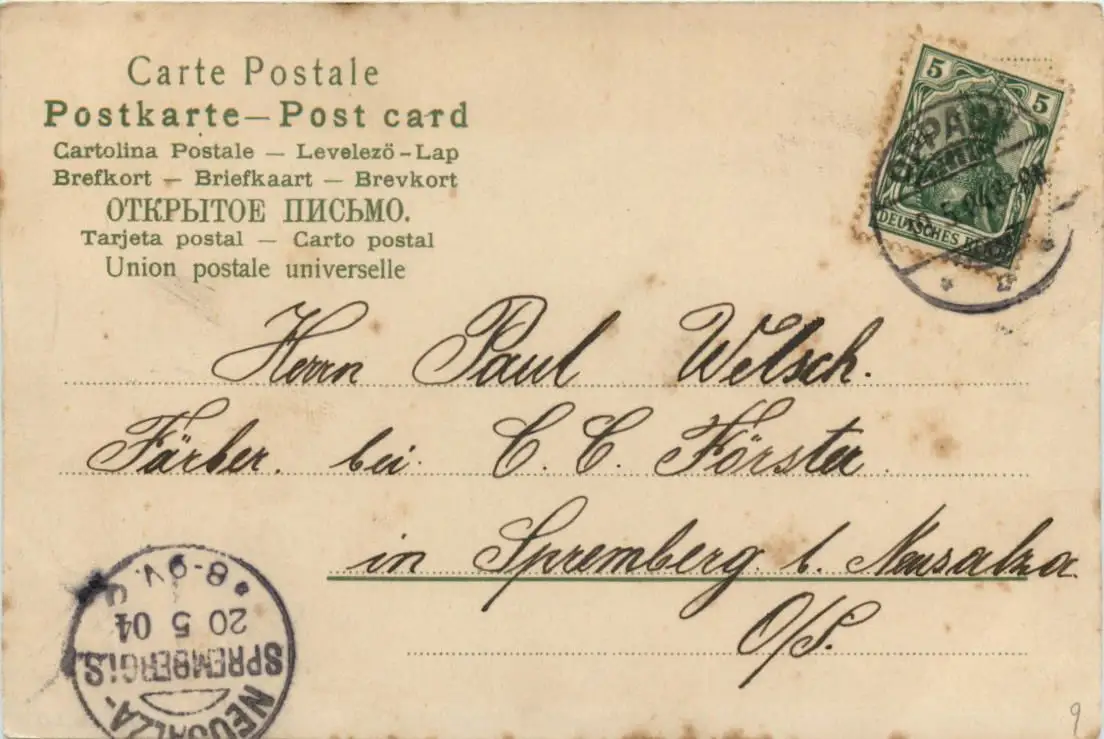 Carte Postale
Postkarte — Post card
Cartolina Postale — Levelező-Lap
Brefkort — Briefkaart — Brevkort
ОТКРЫТОЕ ПИСЬМО.
Tarjeta postal — Carto postal
Union postale universelle
5 5
DEUTSCHES REICH
Herrn Paul Welsch.
Färber. bei C. C. Förster.
in Spremberg b. Neusalza
O/S.
NEUSALZA-
SPREMBERG i. S.
20 5 04
8-9V.
9